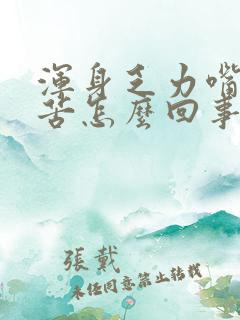 渾身乏力嘴
苦怎麼回事
張戴
未經同意禁止轉載